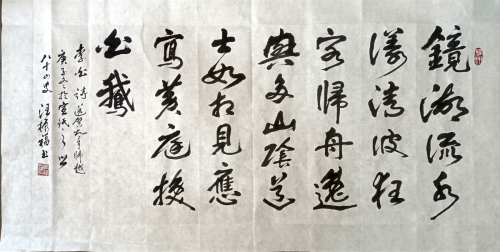 鏡湖流水
漾清波狂
客歸舟逸
興多山陰道
士如相見應
寫黃庭換
白鵝
李白诗送賀歸越
庚子冬於宣城
八十四叟汪振福书